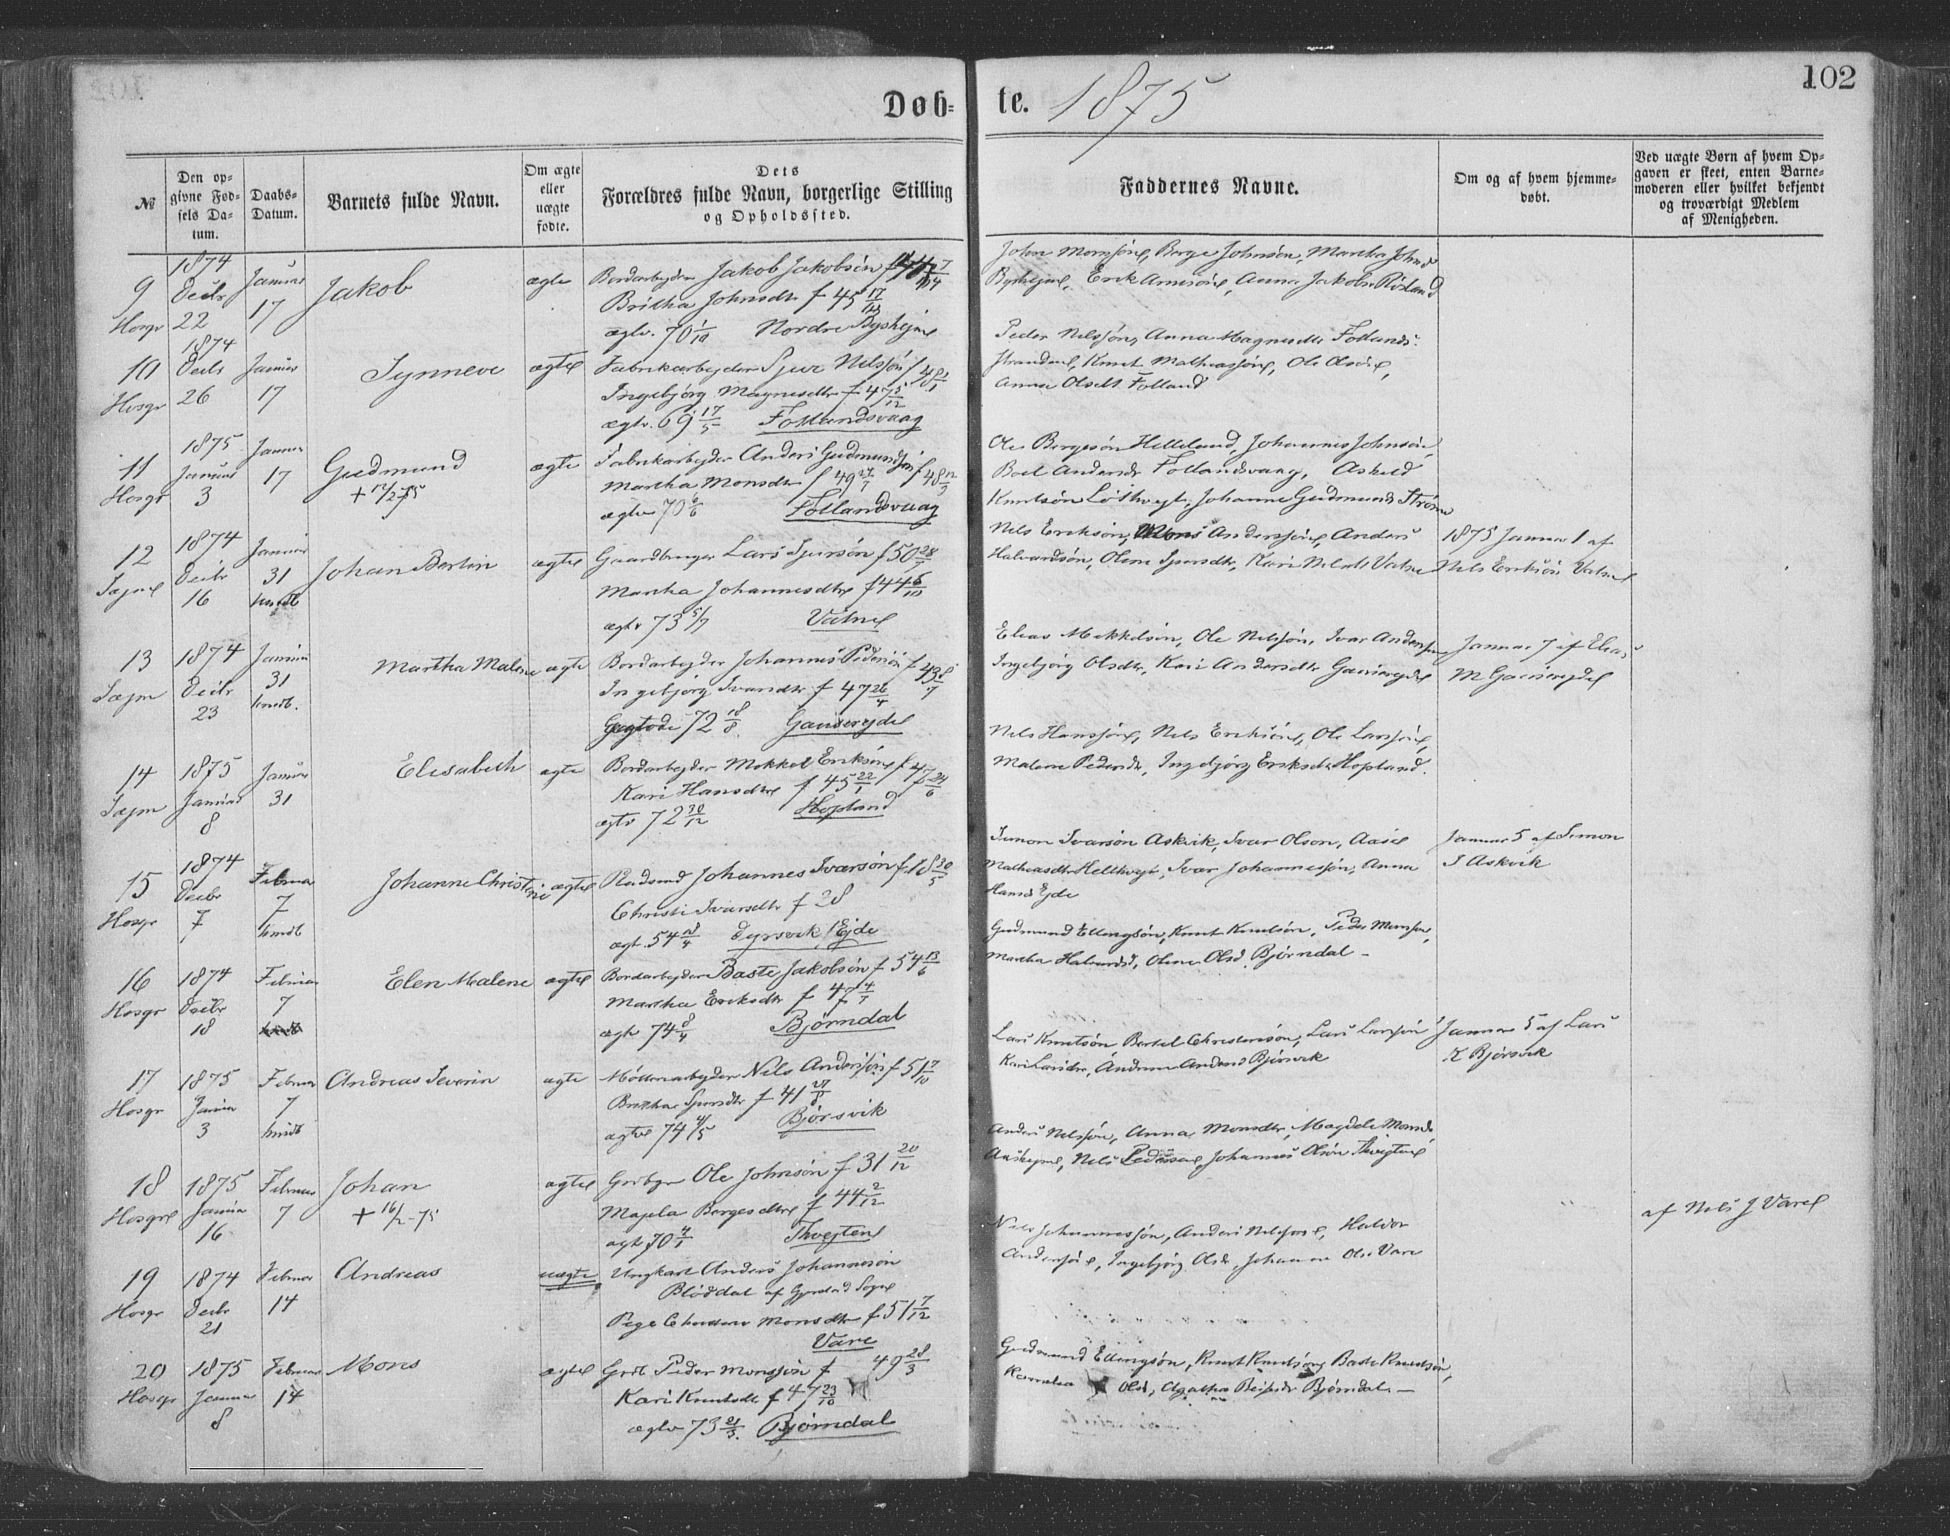 102
Døb-
te. 1875
№
Den op-
givne Fød-
sels Da-
tum.
Daabs-
Datum.
Barnets fulde Navn.
Om ægte
eller
uægte
fødte.
Dets
Forældres fulde Navn, borgerlige Stilling
og Opholdssted.
Faddernes Navne.
Om og af hvem hjemme-
døbt.
Ved uægte Børn af hvem Op-
gaven er skeet, enten Barne-
moderen eller hvilket bekjendt
og troværdigt Medlem
af Menigheden.
9
Hosgr
1874
Decbr
22
Januar
17
Jakob
ægte
Bordarbeyder Jakob Jakobsön
Britha Johnsdtr f 45 17/12
ægtv. 70 1/10 Nordre
John Monssön, Börge Johnsön, Martha Johnsd
Erik Arnesön, Anna Jakobsd
10
Hosgr
1874
Decbr
26
Januar
17
Synneve
ægte
Fabrikarbeyder Sjur Nilssön f 48
Ingebjörg Magnesdtr f 47 5/12
ægtv. 69 17/5 Fotlandsvaag
Peder Nilssön, Anna Magnesdtr Fotlands-
stranden, Knut Mathiassön, Ole Olsön,
Anna Olsdtr Fotland
11
Hosgr
1875
Januar
3
Januar
17
Gudmund
+ 12/2 75
ægte
Fabrikarbeyder Anders Gudmundsön f 48 12/3
Martha Monsdtr f 49 27/7
ægtv 70 6/6 Fotlandsvaag
Ole Börgesön Helleland, Johannes Johnsön,
Boel Andersdtr Fotlandsvaag, Askild
Knutsön Löthveyt, Johanne Gudmundsd Ström
12
Sæjm
1874
Decbr
16
Januar
31
hmdb
Johan Bertin
ægte
Gaardbruger Lars Sjursön f 50
Martha Johannesdtr f 44 6/10
ægtv 73 5/7 Vatne
Nils Eriksön, Mons Anderssön, Anders
Halvardsön, Olene Sjursdtr, Kari Nilsdtr Vatne
1875 Januar 1 af
Nils Eriksön Vatne
13
Sæjm
1874
Decbr
23
Januar
31
hmdb.
Martha Malene
ægte
Bordarbeyder Johannes Pedersön f 43 8/7
Ingebjörg Ivarsdtr f 47 26/4
72 18/8 Gausereyde
Elias Mikkelsön, Ole Nilssön, Ivar Andersson
Ingebjörg Olsdtr, Kari Andersdtr Gausereyde
Januar 7 af Elias
M Gausereyde
14
Sæjm
1875
Januar
8
Januar
31
Elisabeth
ægte
Bordarbeyder Mikkel Eriksön f 47 24/6
Kari Hansdtr f 45 22/1
ægtv 72 30/12 Hopland
Nils Hanssön, Nils Eriksön, Ole Larssön,
Malene Pedersdtr, Ingebjörg Eriksdtr Hopland.
15
Hosgr
1874
Decbr
7
Februar
7
hmdb
Johanne Christine
ægte
Johannes Ivarsön f 18 30/5
Christi Ivarsdtr f 28
ægt. 54 18/4 Dyrsvik / Eyde
Simon Ivarsön Askvik, Ivar Olson, Aase
Mathiasdtr Helthveyt, Ivar Johannessön, Anna
Hansd Eyde
Januar 5 af Simon
I Askvik
16
Hosgr
1874
Decbr
18
Februar
7
Elen Malene
ægte
Bordarbeyder Baste Jakobsön f 54 13/6
Martha Eriksdtr f 47 4/7
ægtv 74 8/4 Björndal
Gudmund Ellingsön, Knut Knutsön, Peder Monssön,
Martha Halvardsd, Olene Olsd. Björndal –
17
Hosgr
1875
Januar
3
Februar
7
hmdb
Andreas Severin
ægte
Möllerarbeyder Nils Andersön f 51 7/10
Britha Sjursdtr f 41 27/8
ægtv 74 4/5 Björsvik
Lars Knutsön Bertel Christensön, Lars Larssön
Kari Larsdtr, Andrea Andersd Björsvik
Januar 5 af Lars
K Björsvik
18
Hosgr
1875
Januar
16
Februar
7
Johan
+ 16/2-75
ægte
Ole Johnsön f 31 20/12
Magela Börgesdtr f 44 2/12
ægtv 70 4/1 Thveyten
Anders Nilssön, Anna Monsdtr, Magdela Monsd
Nils Pederssen, Johannes Olsön Thveyten
19
Hosgr
1874
Decbr
21
Februar
14
Andreas
uægte
Ungkarl Anders Johannesön
Blöddal af Sogn
Pige Monsdtr f 51 7/12
Vare
Nils Johannessön, Anders Nilssön, Haldor
Anderssön, Ingebjörg Olsdr, Johanne Ols Vare
af Nils J Vare
20
Hosgr
1875
Januar
8
Februar
14
Mons
ægte
Peder Monssön f 49 28/3
Kari Knutsdtr f 47 23/10
ægtv 73 21/3. Björndal
Gudmund Ellingsön, Knut Knutsön, Baste Knutsön,
Olsd, Agatha Björndal –